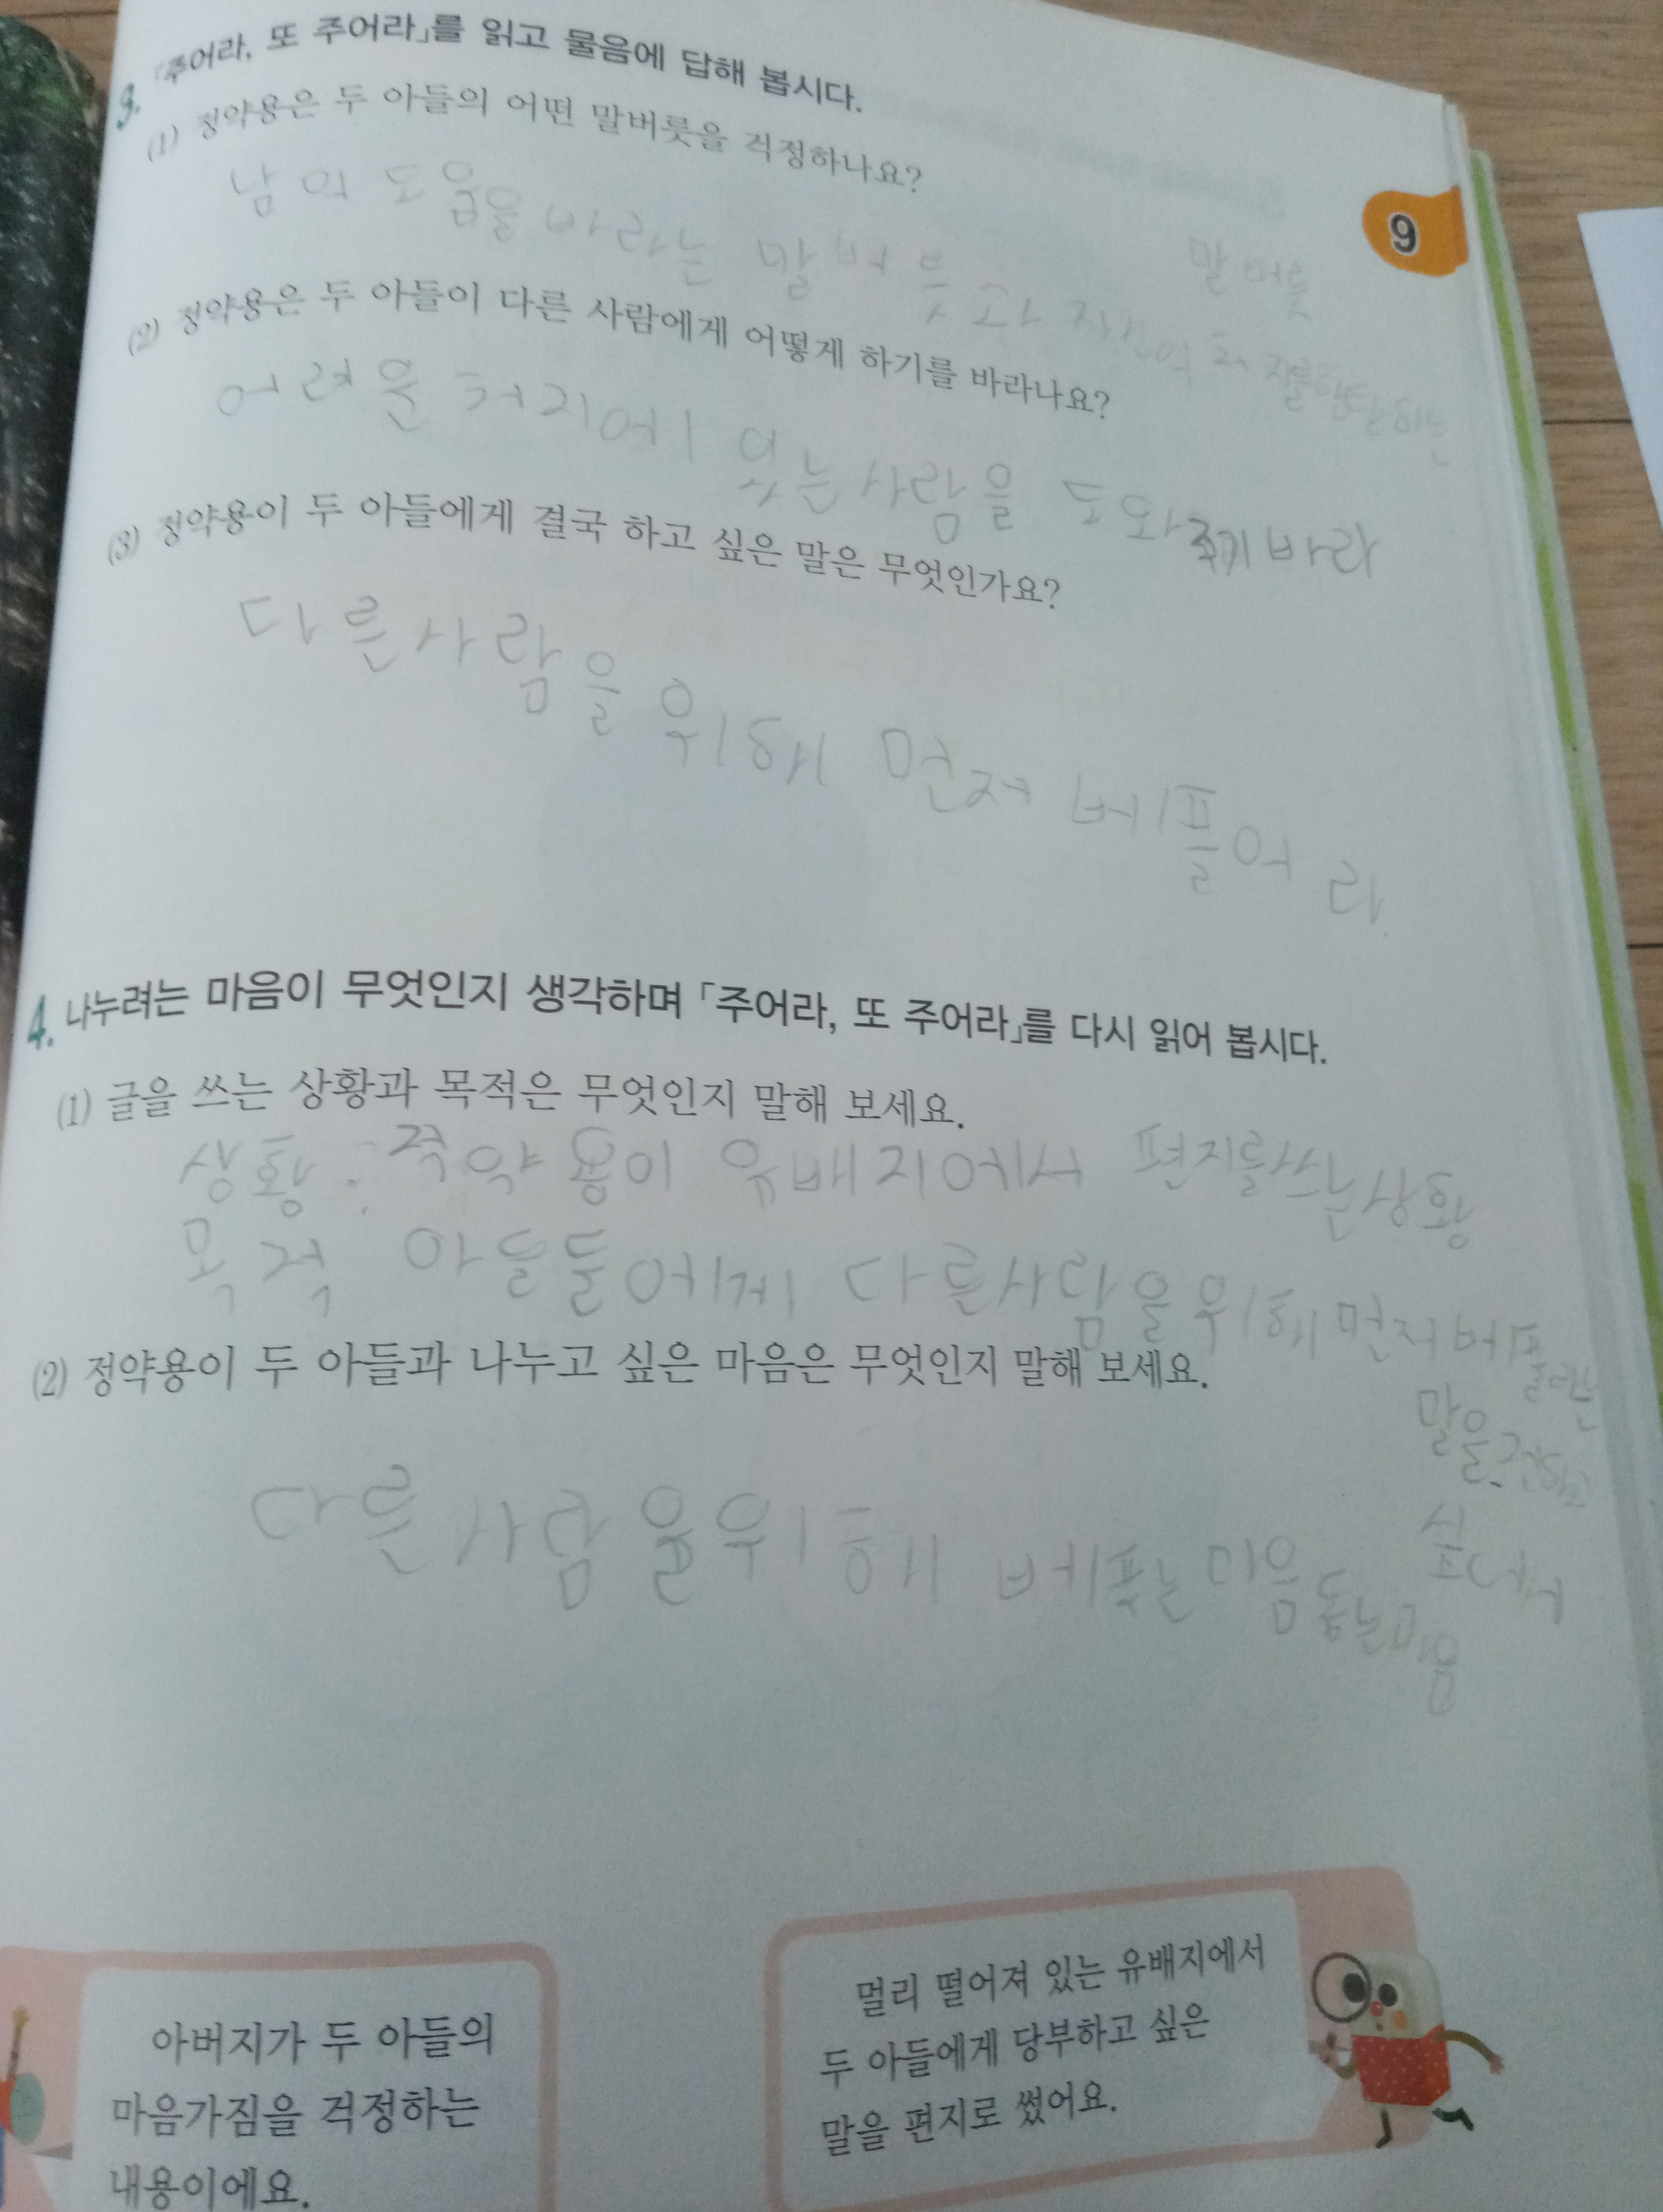 3. 「주어라, 또 주어라」를 읽고 물음에 답해 봅시다.
(1) 정약용은 두 아들의 어떤 말버릇을 걱정하나요?
남의 도움을 바라는 말버릇과 자신의
말버릇
9
(2) 정약용은 두 아들이 다른 사람에게 어떻게 하기를 바라나요?
어려운 처지에 있는 사람을 도와주기 바라
(3) 정약용이 두 아들에게 결국 하고 싶은 말은 무엇인가요?
다른 사람을 위해 먼저 베풀어라.
4. 나누려는 마음이 무엇인지 생각하며 「주어라, 또 주어라」를 다시 읽어 봅시다.
(1) 글을 쓰는 상황과 목적은 무엇인지 말해 보세요.
상황: 정약용이 유배지에서 편지를 쓰는 상황
목적 아들들에게 다른 사람을 위해 먼저 베풀라는
말을 전하고
싶어서
(2) 정약용이 두 아들과 나누고 싶은 마음은 무엇인지 말해 보세요.
다른 사람을 위해 베푸는 마음 돕는 마음
아버지가 두 아들의
마음가짐을 걱정하는
내용이에요.
멀리 떨어져 있는 유배지에서
두 아들에게 당부하고 싶은
말을 편지로 썼어요.